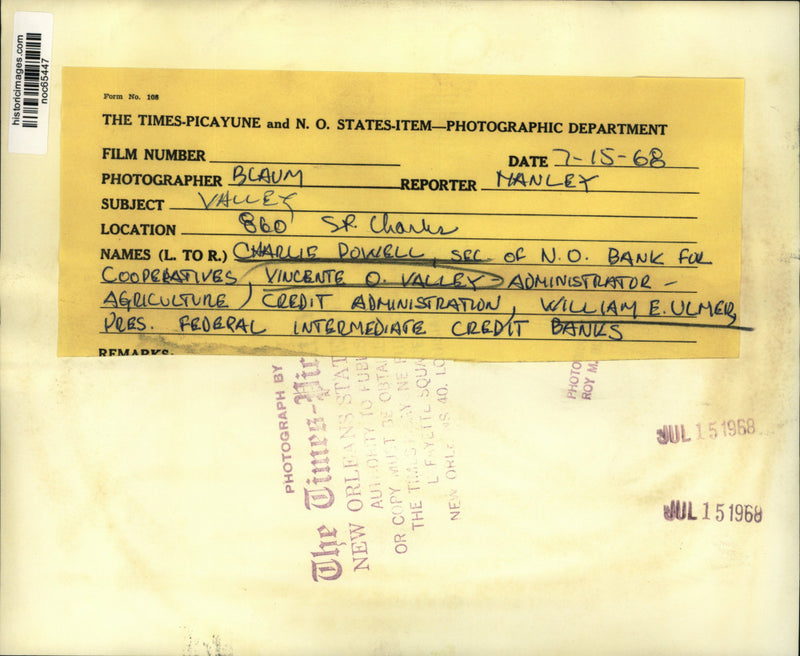 historicimages.com
noc65447
Form No. 108
THE TIMES-PICAYUNE and N. O. STATES-ITEM—PHOTOGRAPHIC DEPARTMENT
FILM NUMBER
DATE 7-15-68
PHOTOGRAPHER BLAUM
REPORTER MANLEY
SUBJECT VALLEY
LOCATION 860 St. Charles
NAMES (L. TO R.) CHARLIE DOWELL, SEC. OF N.O. BANK FOR
COOPERATIVES, VINCENTE O. VALLEY ADMINISTRATOR -
AGRICULTURE CREDIT ADMINISTRATION, WILLIAM E. ULMER,
PRES. FEDERAL INTERMEDIATE CREDIT BANKS
REMARKS:
PHOTOGRAPH BY
The Times-Pic
NEW ORLEANS STAT
AUTHORITY TO PUBL
OR COPY MUST BE OBTAI
THE TIMES
LAFAYETTE SQUA
NEW ORLE NS 40, LO
PHOTO
ROY M.
JUL 15 1968
JUL 15 1968